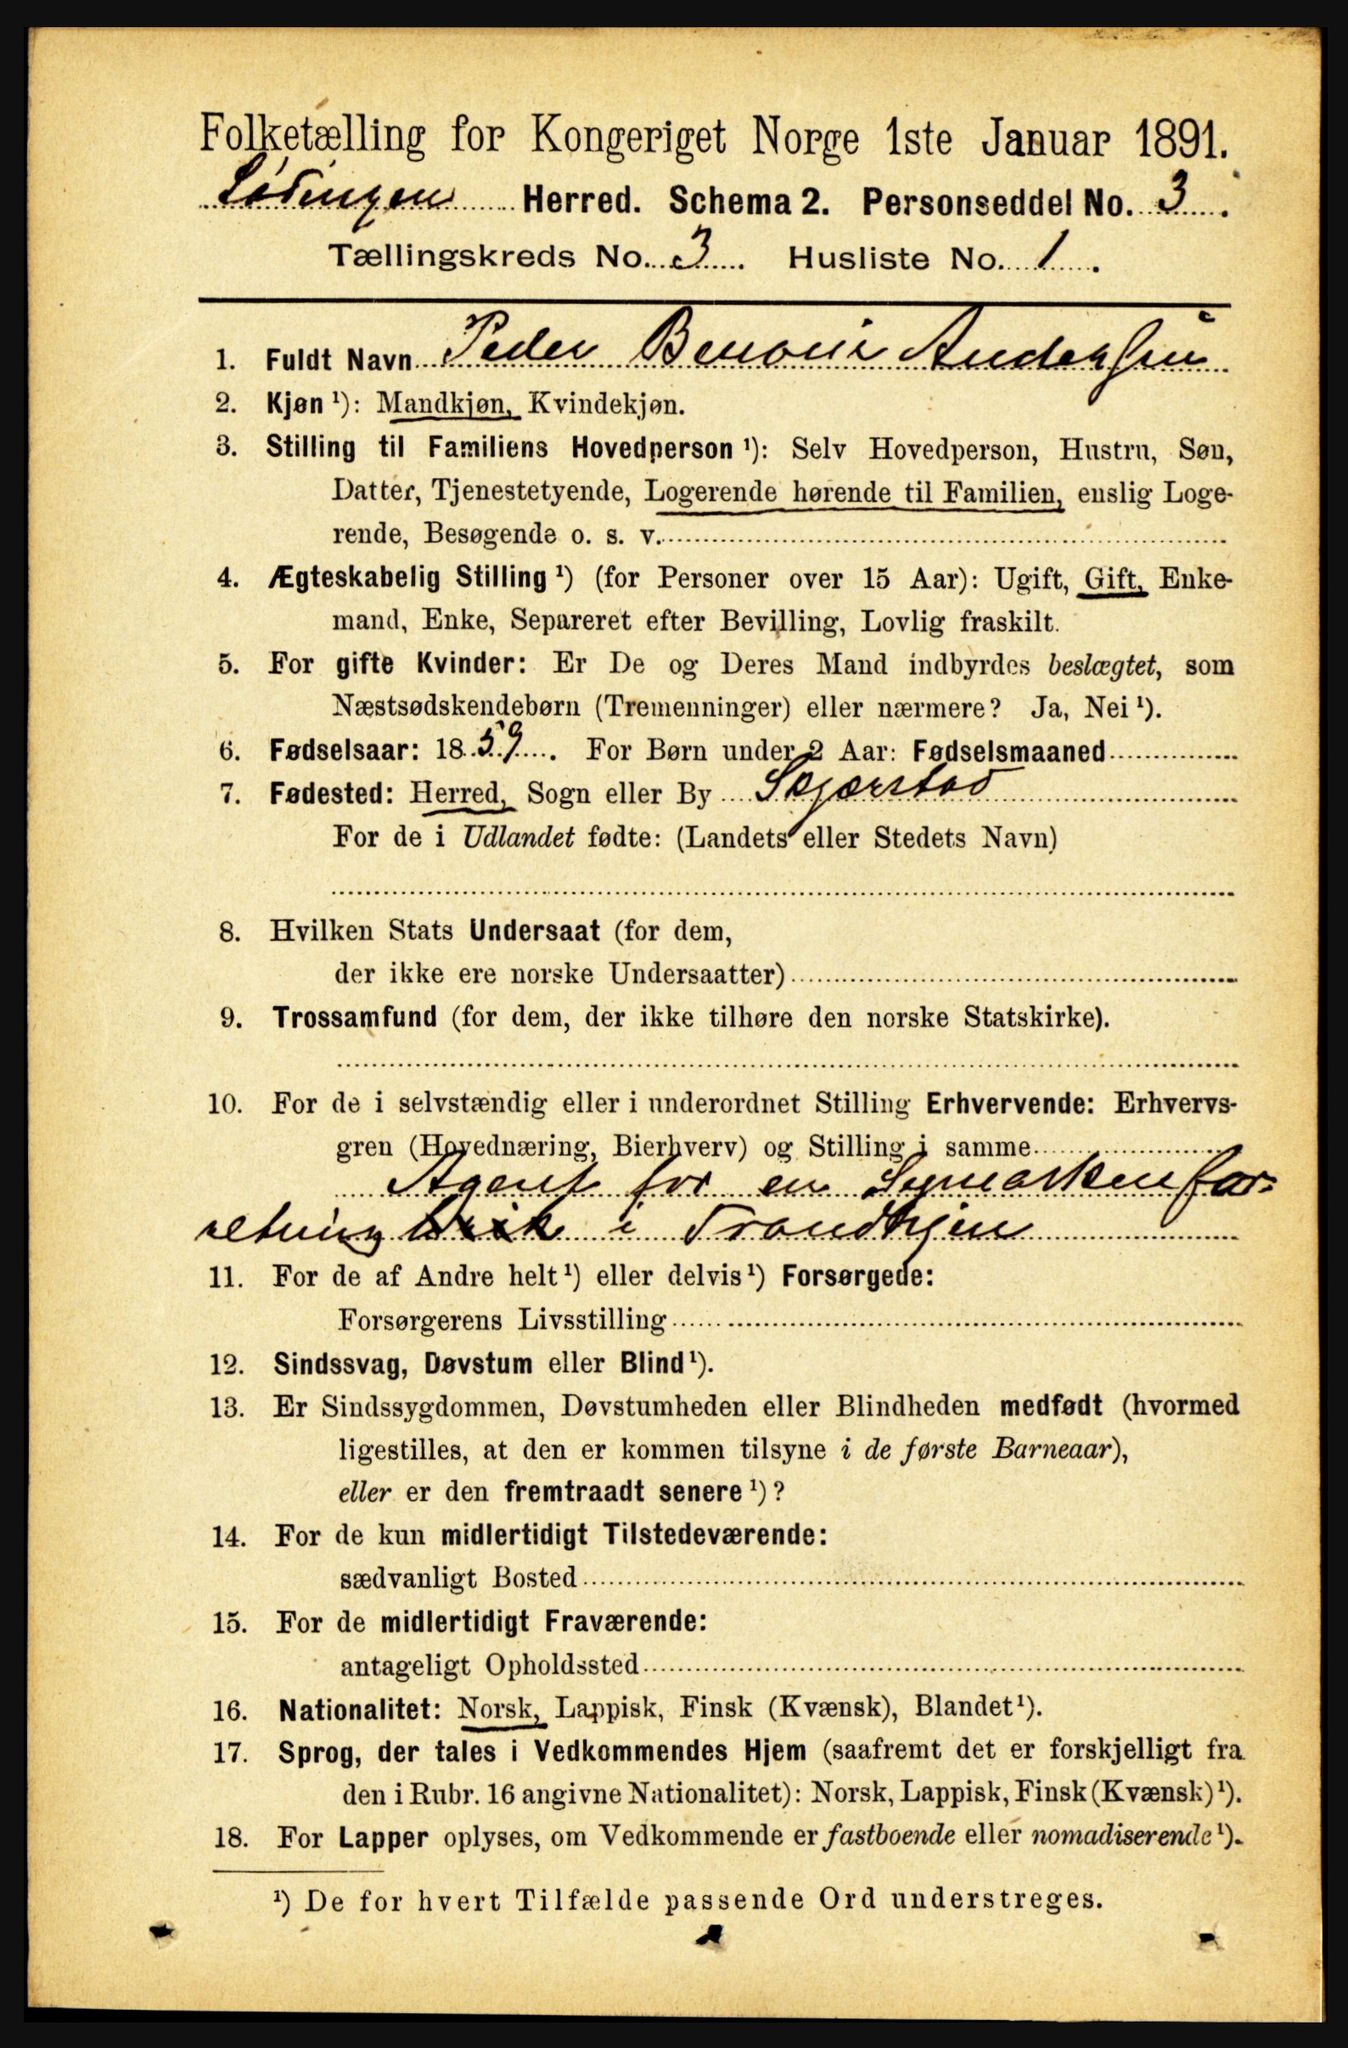 Folketælling for Kongeriget Norge 1ste Januar 1891.
Lødingen Herred. Schema 2. Personseddel No. 3.
Tællingskreds No. 3. Husliste No. 1.
1. Fuldt Navn Peder Benoni Andersen
2. Kjøn ¹): Mandkjøn, Kvindekjøn.
3. Stilling til Familiens Hovedperson ¹): Selv Hovedperson, Hustru, Søn,
Datter, Tjenestetyende, Logerende hørende til Familien, enslig Loge-
rende, Besøgende o. s. v.
4. Ægteskabelig Stilling ¹) (for Personer over 15 Aar): Ugift, Gift, Enke-
mand, Enke, Separeret efter Bevilling, Lovlig fraskilt.
5. For gifte Kvinder: Er De og Deres Mand indbyrdes beslægtet, som
Næstsødskendebørn (Tremenninger) eller nærmere? Ja, Nei ¹).
6. Fødselsaar: 1859. For Børn under 2 Aar: Fødselsmaaned
7. Fødested: Herred, Sogn eller By Skjærstad
For de i Udlandet fødte: (Landets eller Stedets Navn)
8. Hvilken Stats Undersaat (for dem,
der ikke ere norske Undersaatter)
9. Trossamfund (for dem, der ikke tilhøre den norske Statskirke).
10. For de i selvstændig eller i underordnet Stilling Erhvervende: Erhvervs-
gren (Hovednæring, Bierhverv) og Stilling i samme
Agent for en Symaskenfor-
retning i Trondhjem
11. For de af Andre helt ¹) eller delvis ¹) Forsørgede:
Forsørgerens Livsstilling
12. Sindssvag, Døvstum eller Blind ¹).
13. Er Sindssygdommen, Døvstumheden eller Blindheden medfødt (hvormed
ligestilles, at den er kommen tilsyne i de første Barneaar),
eller er den fremtraadt senere ¹)?
14. For de kun midlertidigt Tilstedeværende:
sædvanligt Bosted
15. For de midlertidigt Fraværende:
antageligt Opholdssted
16. Nationalitet: Norsk, Lappisk, Finsk (Kvænsk), Blandet ¹).
17. Sprog, der tales i Vedkommendes Hjem (saafremt det er forskjelligt fra
den i Rubr. 16 angivne Nationalitet): Norsk, Lappisk, Finsk (Kvænsk) ¹).
18. For Lapper oplyses, om Vedkommende er fastboende eller nomadiserende ¹).
¹) De for hvert Tilfælde passende Ord understreges.